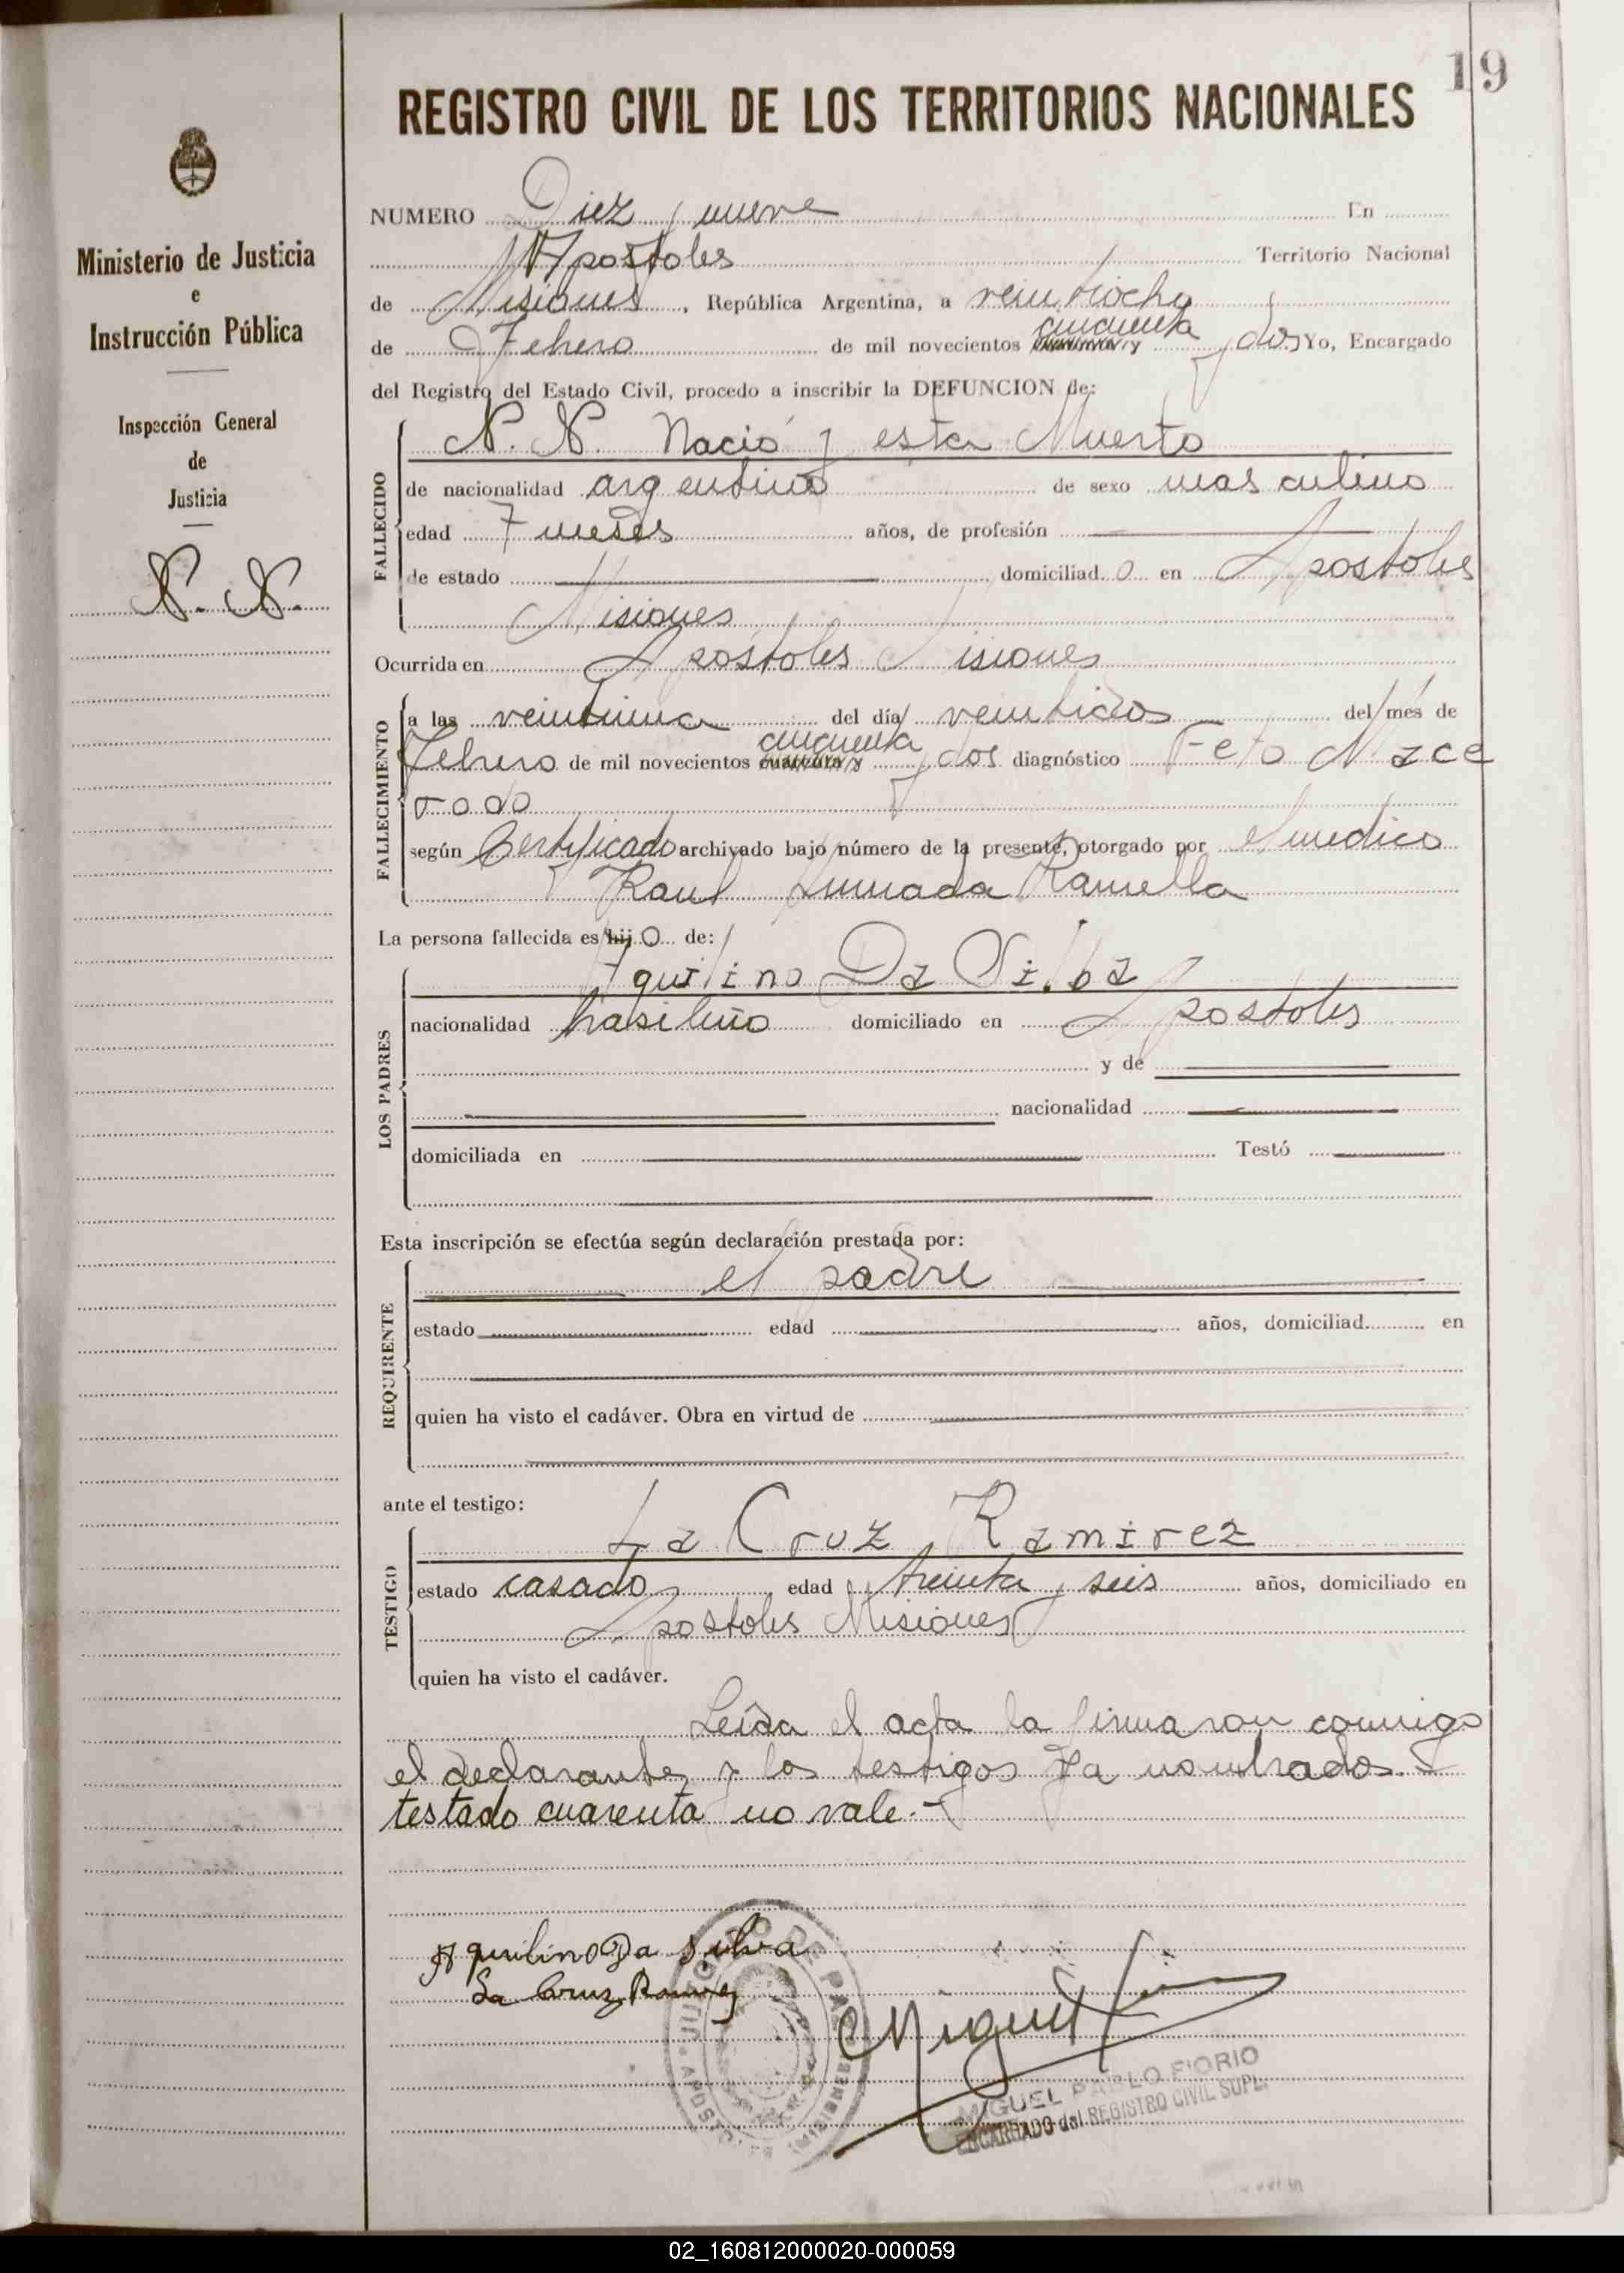 19
REGISTRO CIVIL DE LOS TERRITORIOS NACIONALES
Ministerio de Justicia
e
Instrucción Pública
Inspección General
de
Justicia
N. N.
NUMERO Diez y nueve En
Apostoles Territorio Nacional
de Misiones, República Argentina, a veintiocho
de Febrero de mil novecientos cincuenta y dos Yo, Encargado
del Registro del Estado Civil, procedo a inscribir la DEFUNCION de:
FALLECIDO
N. N. Nació y esta Muerto
de nacionalidad argentino de sexo masculino
edad 7 meses años, de profesión
de estado domiciliado en Apostoles
Misiones
Ocurrida en Apóstoles Misiones
FALLECIMIENTO
a las veintiuna del día veintidos del mes de
Febrero de mil novecientos cincuenta y dos diagnóstico Feto Mace
rado
según Certificado archivado bajo número de la presente, otorgado por el medico
Raul Ramella
La persona fallecida es hijo de:
LOS PADRES
Aquilino Da Silba
nacionalidad brasileño domiciliado en Apostoles
y de
nacionalidad
domiciliada en Testó
Esta inscripción se efectúa según declaración prestada por:
REQUIRENTE
el padre
estado edad años, domiciliad en
quien ha visto el cadáver. Obra en virtud de
ante el testigo:
TESTIGO
La Cruz Ramirez
estado casado, edad treinta y seis años, domiciliado en
Apostoles Misiones
quien ha visto el cadáver.
Leída el acta la firmaron conmigo
el declarante y los testigos ya nombrados.
testado cuarenta no vale.-
Aquilino Da Silva
La Cruz Ramirez
Miguel
MIGUEL PABLO FIORIO
ENCARGADO del REGISTRO CIVIL SUPL.
JUZGADO DE PAZ
APOSTOLES (MISIONES)
02_160812000020-000059